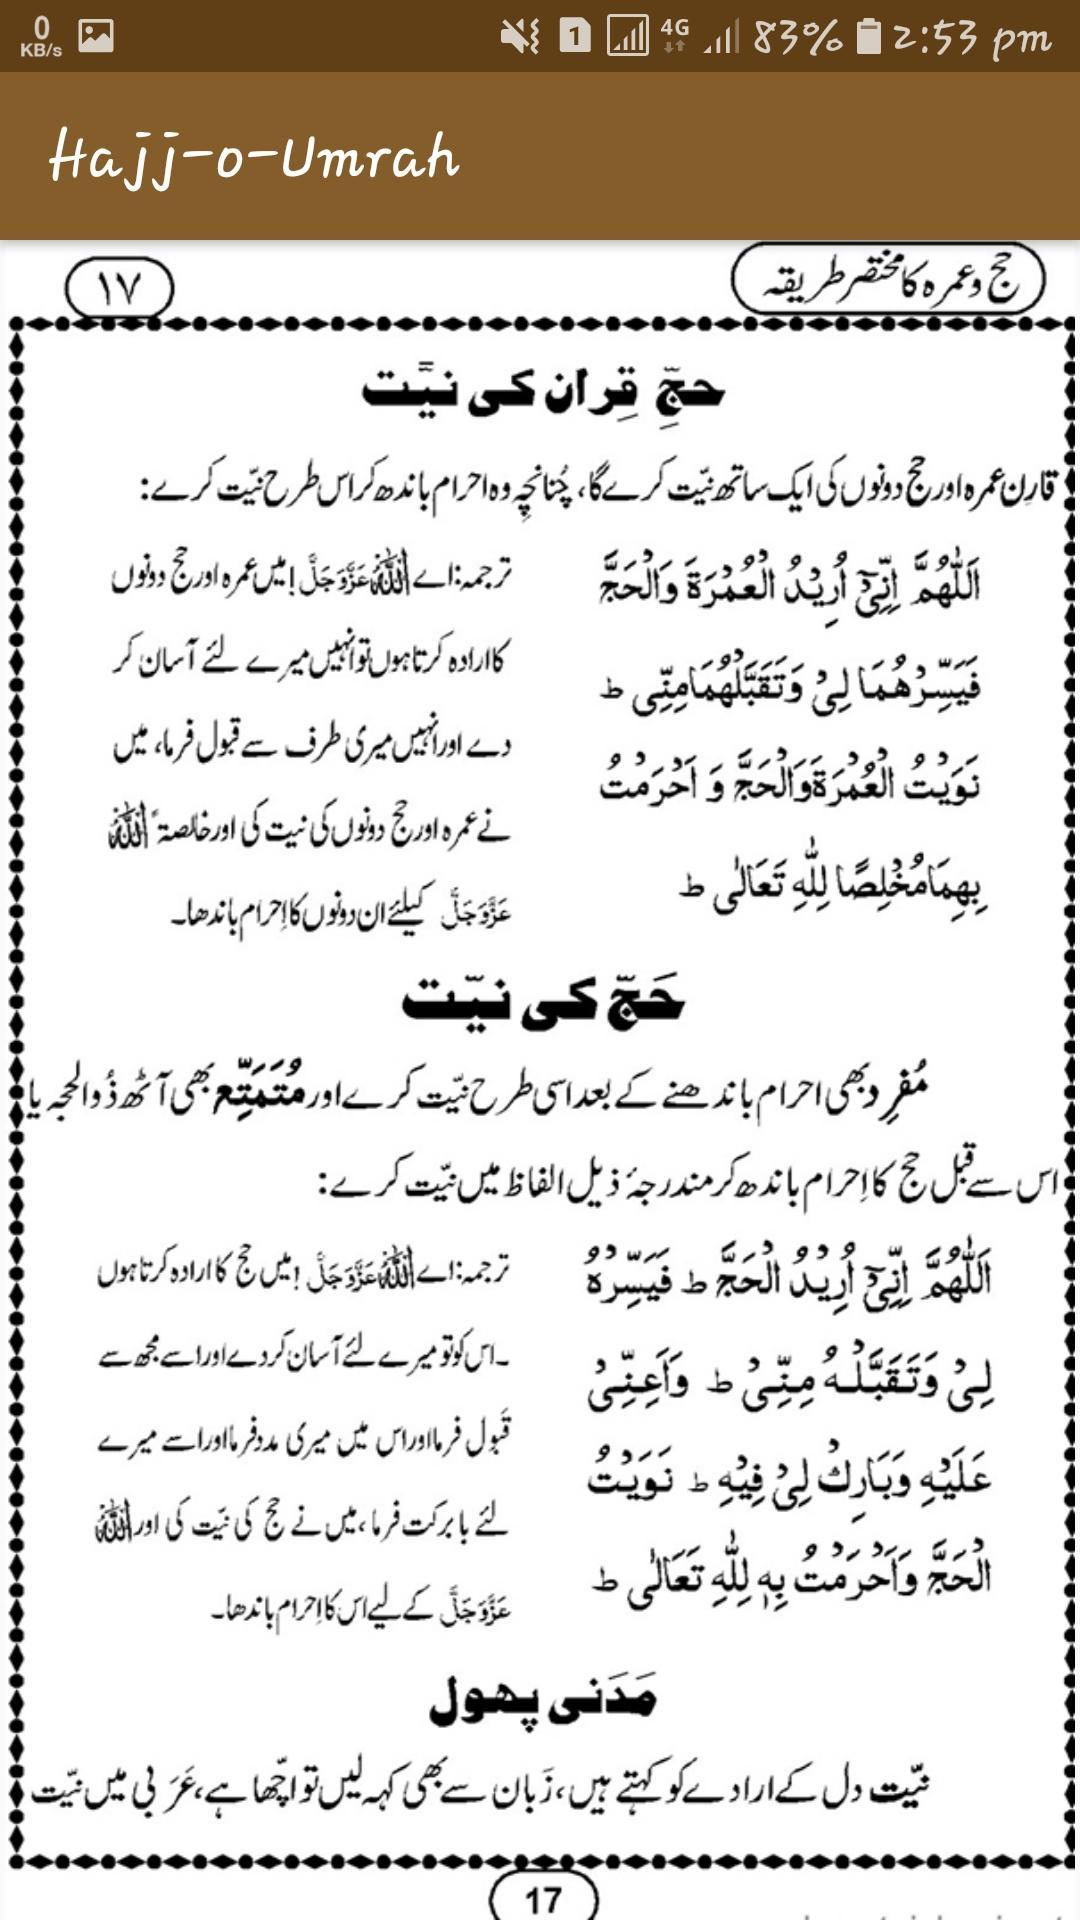 0 KB/s 1 4G 83% 2:53 pm
Hajj-o-Umrah
حج و عمرہ کا مختصر طریقہ ۱۷
حجِّ قِران کی نیَّت
قارِن عمرہ اور حج دونوں کی ایک ساتھ نیّت کرے گا، چُنانچِہ وہ احرام باندھ کر اس طرح نیّت کرے:
اَللّٰهُمَّ اِنِّیْۤ اُرِیْدُ الْعُمْرَةَ وَالْحَجَّ
فَیَسِّرْهُمَا لِیْ وَتَقَبَّلْهُمَامِنِّی ط
نَوَیْتُ الْعُمْرَةَوَالْحَجَّ وَ اَحْرَمْتُ
بِهِمَامُخْلِصًا لِلّٰهِ تَعَالٰی ط
ترجمہ: اے اللہ عَزَّوَجَلَّ! میں عمرہ اور حج دونوں
کا ارادہ کرتا ہوں تو انہیں میرے لئے آسان کر
دے اور انہیں میری طرف سے قبول فرما، میں
نے عمرہ اور حج دونوں کی نیت کی اور خالصۃً اللہ
عَزَّوَجَلَّ کیلئے ان دونوں کا اِحرام باندھا۔
حَجّ کی نیّت
مُفرِد بھی احرام باندھنے کے بعد اسی طرح نیّت کرے اور مُتَمَتِّع بھی آٹھ ذُوالحجہ یا
اس سے قبل حج کا اِحرام باندھ کر مندرجۂ ذیل الفاظ میں نیّت کرے:
اَللّٰهُمَّ اِنِّیْۤ اُرِیْدُ الْحَجَّ ط فَیَسِّرْهُ
لِیْ وَتَقَبَّلْهُ مِنِّیْ ط وَاَعِنِّیْ
عَلَیْهِ وَبَارِكْ لِیْ فِیْهِ ط نَوَیْتُ
الْحَجَّ وَاَحْرَمْتُ بِهٖ لِلّٰهِ تَعَالٰی ط
ترجمہ: اے اللہ عَزَّوَجَلَّ! میں حج کا ارادہ کرتا ہوں
۔اس کو تو میرے لئے آسان کردے اور اسے مجھ سے
قَبول فرما اور اس میں میری مدد فرما اور اسے میرے
لئے بابرکت فرما، میں نے حج کی نیّت کی اور اللہ
عَزَّوَجَلَّ کے لیے اس کا اِحرام باندھا۔
مَدَنی پھول
نیّت دل کے ارادے کو کہتے ہیں، زَبان سے بھی کہہ لیں تو اچّھا ہے، عَرَبی میں نیّت
17